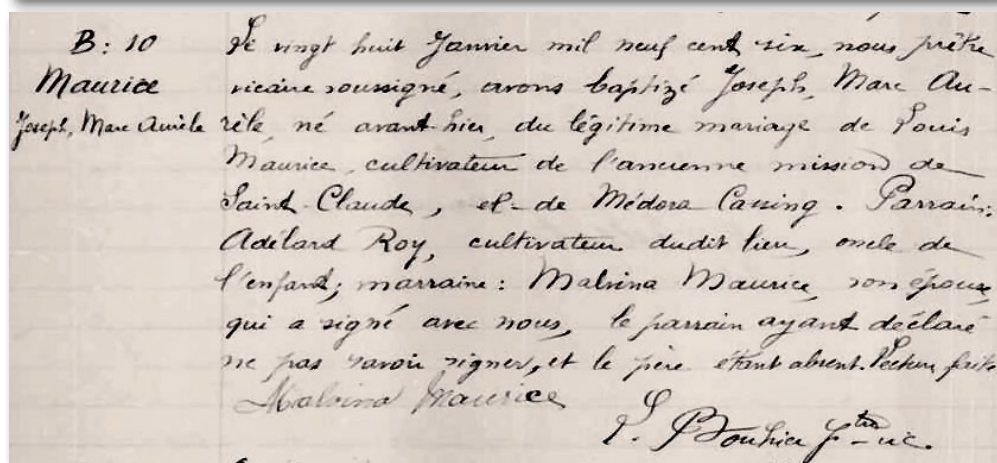 B: 10
Maurice
Joseph, Marc Aurèle
Le vingt huit Janvier mil neuf cent six, nous prêtre
vicaire soussigné, avons baptizé Joseph, Marc Au-
rèle, né avant-hier, du légitime mariage de Louis
Maurice, cultivateur de l'ancienne mission de
Saint-Claude, et de Médora Cassing. Parrain:
Adélard Roy, cultivateur dudit lieu, oncle de
l'enfant; marraine: Malvina Maurice, son épouse,
qui a signé avec nous, le parrain ayant déclaré
ne pas savoir signer, et le père étant absent. Lecture faite
Malvina Maurice
ptre vic.